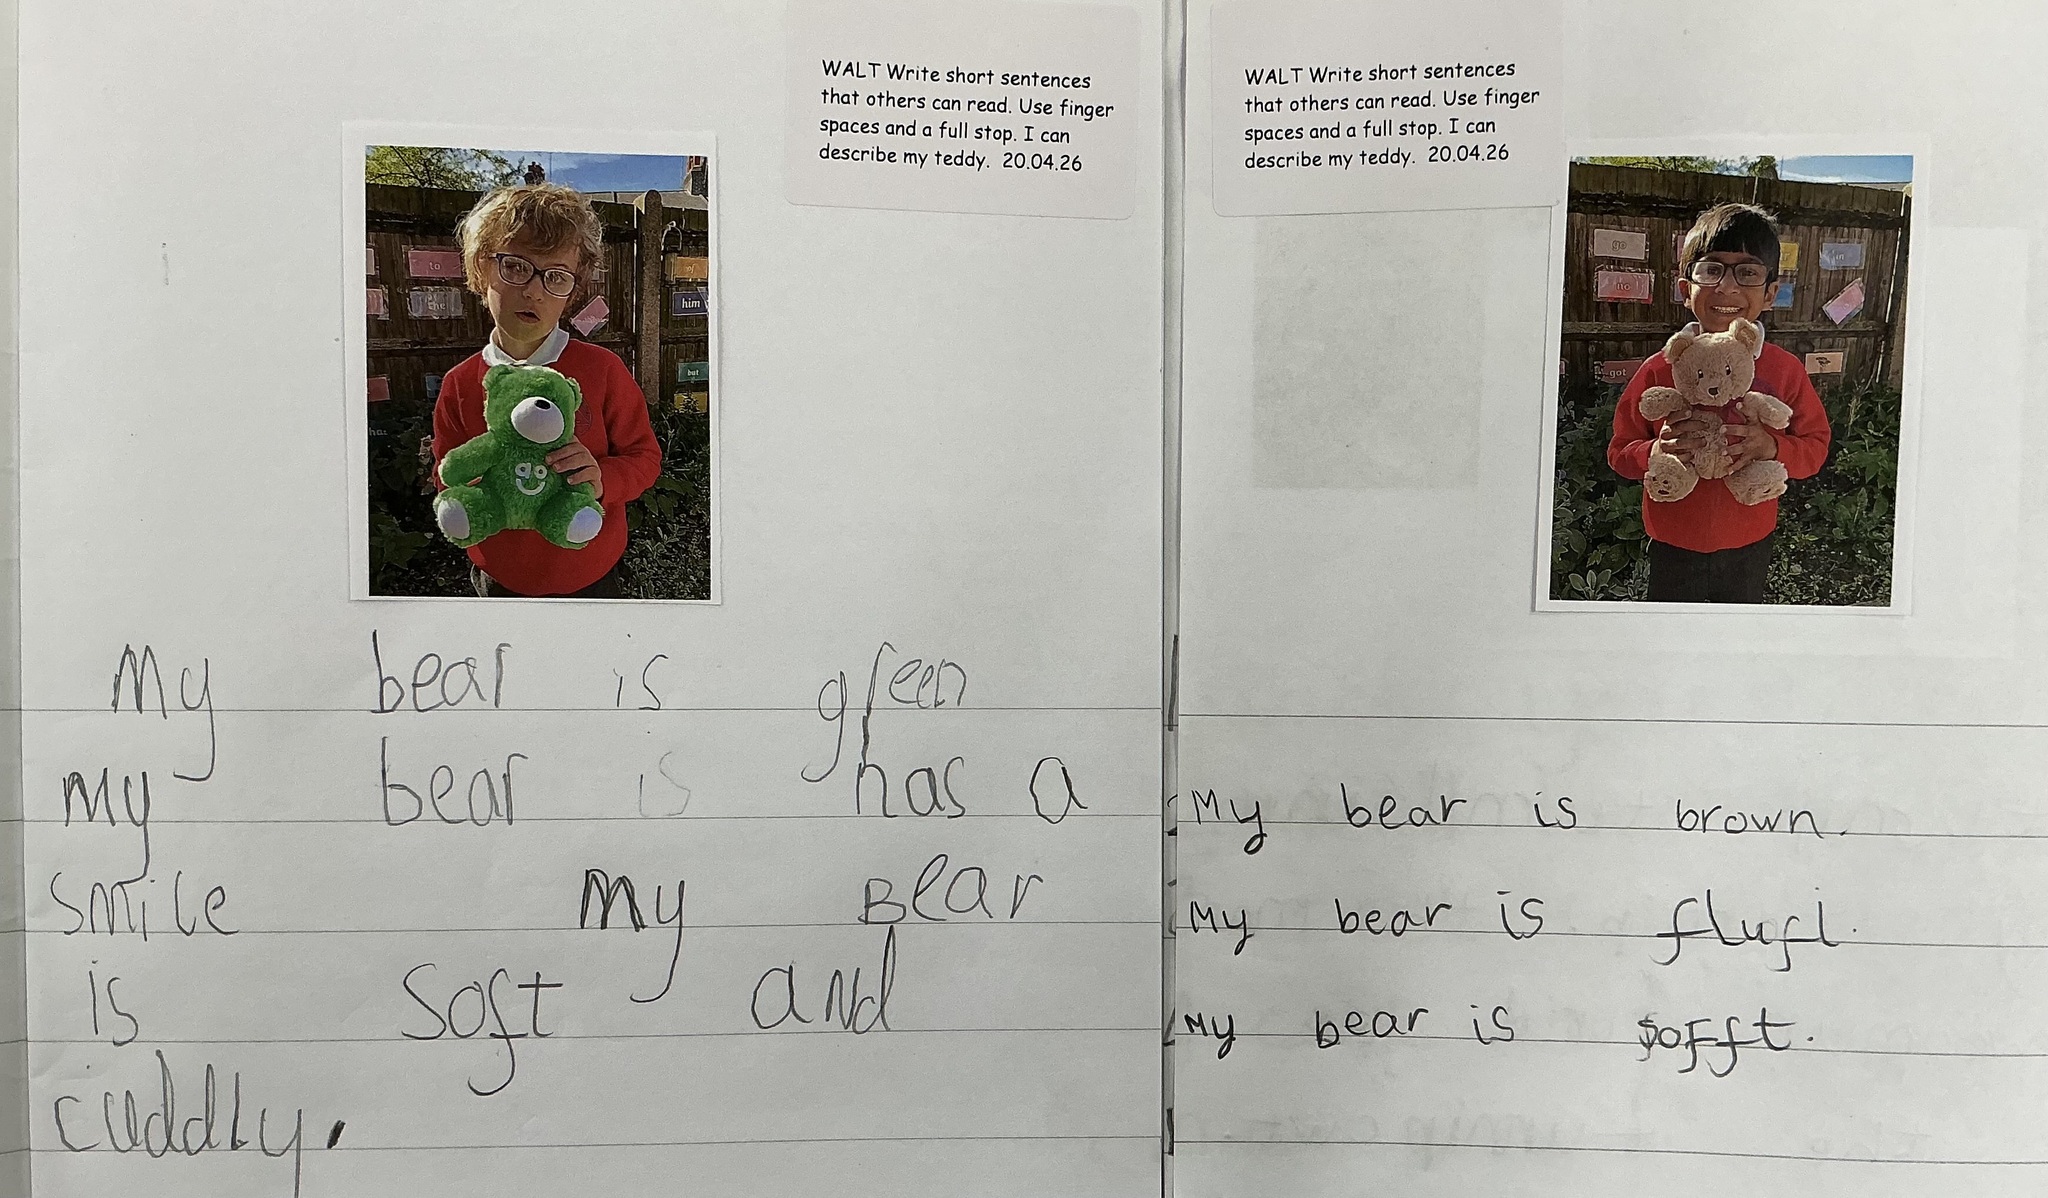 WALT Write short sentences
that others can read. Use finger
spaces and a full stop. I can
describe my teddy. 20.04.26
to
the
of
him
but
go
My bear is green
my bear is has a
smile my Bear
is soft and
cuddly.
WALT Write short sentences
that others can read. Use finger
spaces and a full stop. I can
describe my teddy. 20.04.26
go
no
in
got
My bear is brown.
My bear is flufi.
My bear is sofft.